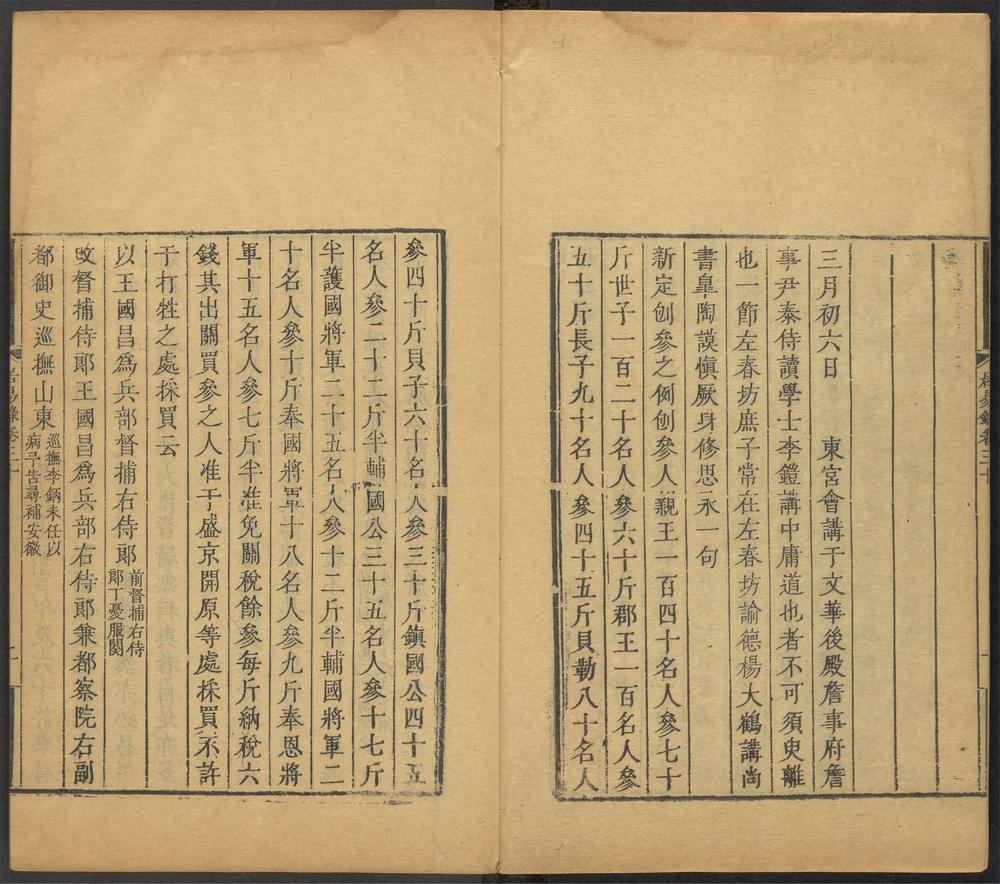 三月初六日　東宮會講于文華後殿詹事府詹
事尹泰侍讀學士李鎧講中庸道也者不可須臾離
也一節左春坊庶子常在左春坊諭德楊大鶴講尚
書臯陶謨愼厥身修思永一句
新定刨參之例刨參人親王一百四十名人參七十
斤世子一百二十名人參六十斤郡王一百名人參
五十斤長子九十名人參四十五斤貝勒八十名人
參四十斤貝子六十名人參三十斤鎮國公四十五
名人參二十二斤半輔國公三十五名人參十七斤
半護國將軍二十五名人參十二斤半輔國將軍二
十名人參十斤奉國將軍十八名人參九斤奉恩將
軍十五名人參七斤半准免關稅餘參每斤納稅六
錢其出關買參之人准于盛京開原等處採買不許
于打牲之處採買云
以王國昌爲兵部督捕右侍郞前督捕右侍
郞丁憂服闋
改督捕侍郞王國昌爲兵部右侍郞兼都察院右副
都御史巡撫山東巡撫李鈵未任以
病予告尋補安徽
居易錄卷三十